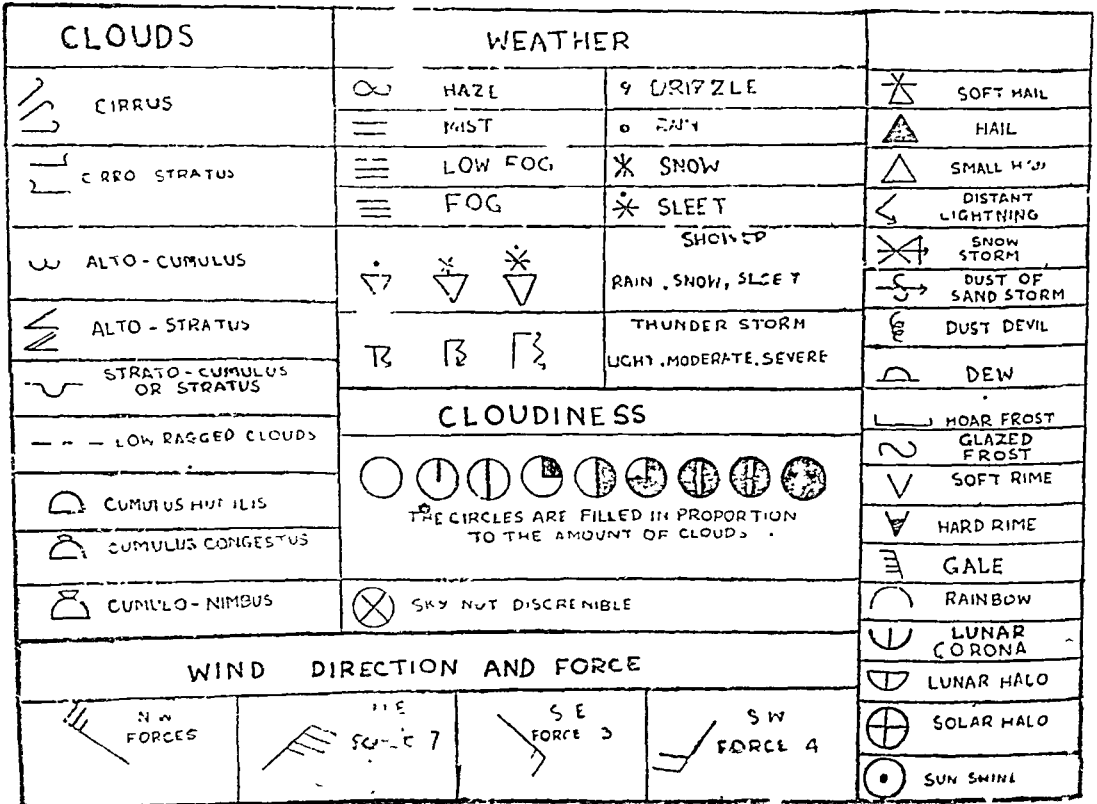 CLOUDS
CIRRUS
STRATUS
ALTO-CUMULUS
ALTO - STRATUS
STRATO-CUMULUS
OR STRATUS
LOW RAGGED CLOUDS
CUMULUS
CUMULUS CONGESTUS
CUMULO-NIMBUS
WEATHER
HAZE
DRIZZLE
MIST
LOW FOG
SNOW
FOG
SLEET
RAIN , SNOW, SLEET
THUNDER STORM
LIGHT , MODERATE, SEVERE
CLOUDINESS
THE CIRCLES ARE FILLED IN PROPORTION
TO THE AMOUNT OF CLOUDS .
SKY NOT DISCRENIBLE
SOFT HAIL
HAIL
SMALL
DISTANT
LIGHTNING
SNOW
STORM
DUST OF
SAND STORM
DUST DEVIL
DEW
HOAR FROST
GLAZED
FROST
SOFT RIME
HARD RIME
GALE
RAINBOW
LUNAR
CORONA
LUNAR HALO
SOLAR HALO
SUN SHINE
WIND DIRECTION AND FORCE
N W
FORCES
7
S E
FORCE 3
S W
FORCE 4